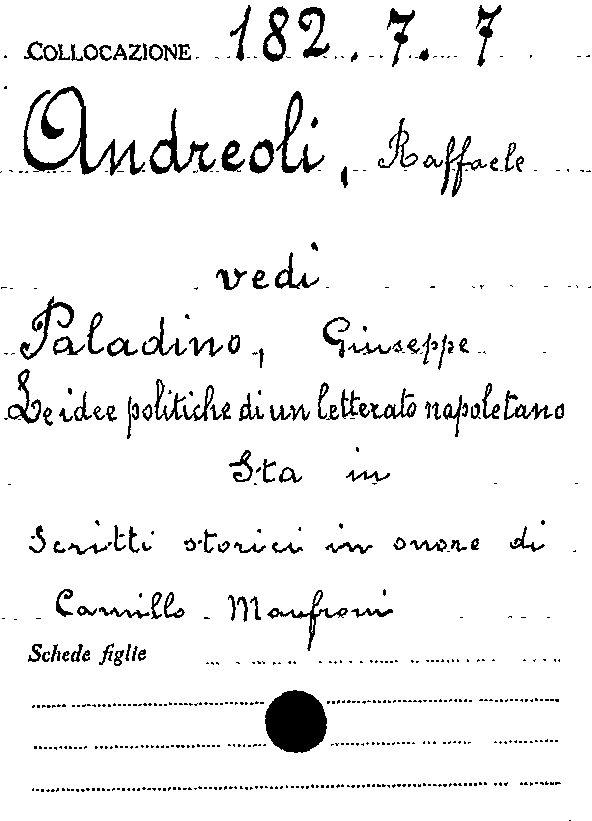 COLLOCAZIONE 182.7.7
Andreoli, Raffaele
vedi
Paladino, Giuseppe
Le idee politiche di un letterato napoletano
Sta in
Scritti storici in onore di
Camillo Manfroni
Schede figlie